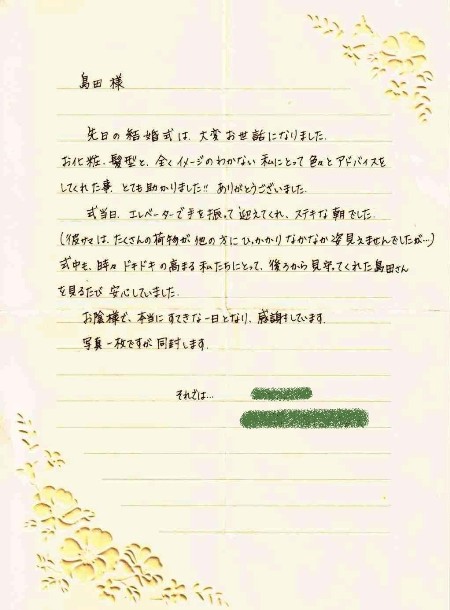 島田 様
先日の結婚式は、大変お世話になりました。
お化粧、髪型と、全くイメージのわかない私にとって色々とアドバイスを
してくれた事、とても助かりました!! ありがとうございました。
式当日、エレベーターで手を振って迎えてくれ、ステキな朝でした。
(彼サマは、たくさんの荷物が他の方にひっかかりなかなか姿見えませんでしたが…)
式中も、時々ドキドキの高まる私たちにとって、後ろから見守ってくれた島田さん
を見るたび安心していました。
お陰様で、本当にすてきな一日となり、感謝をしています。
写真一枚ですが同封します。
それでは…